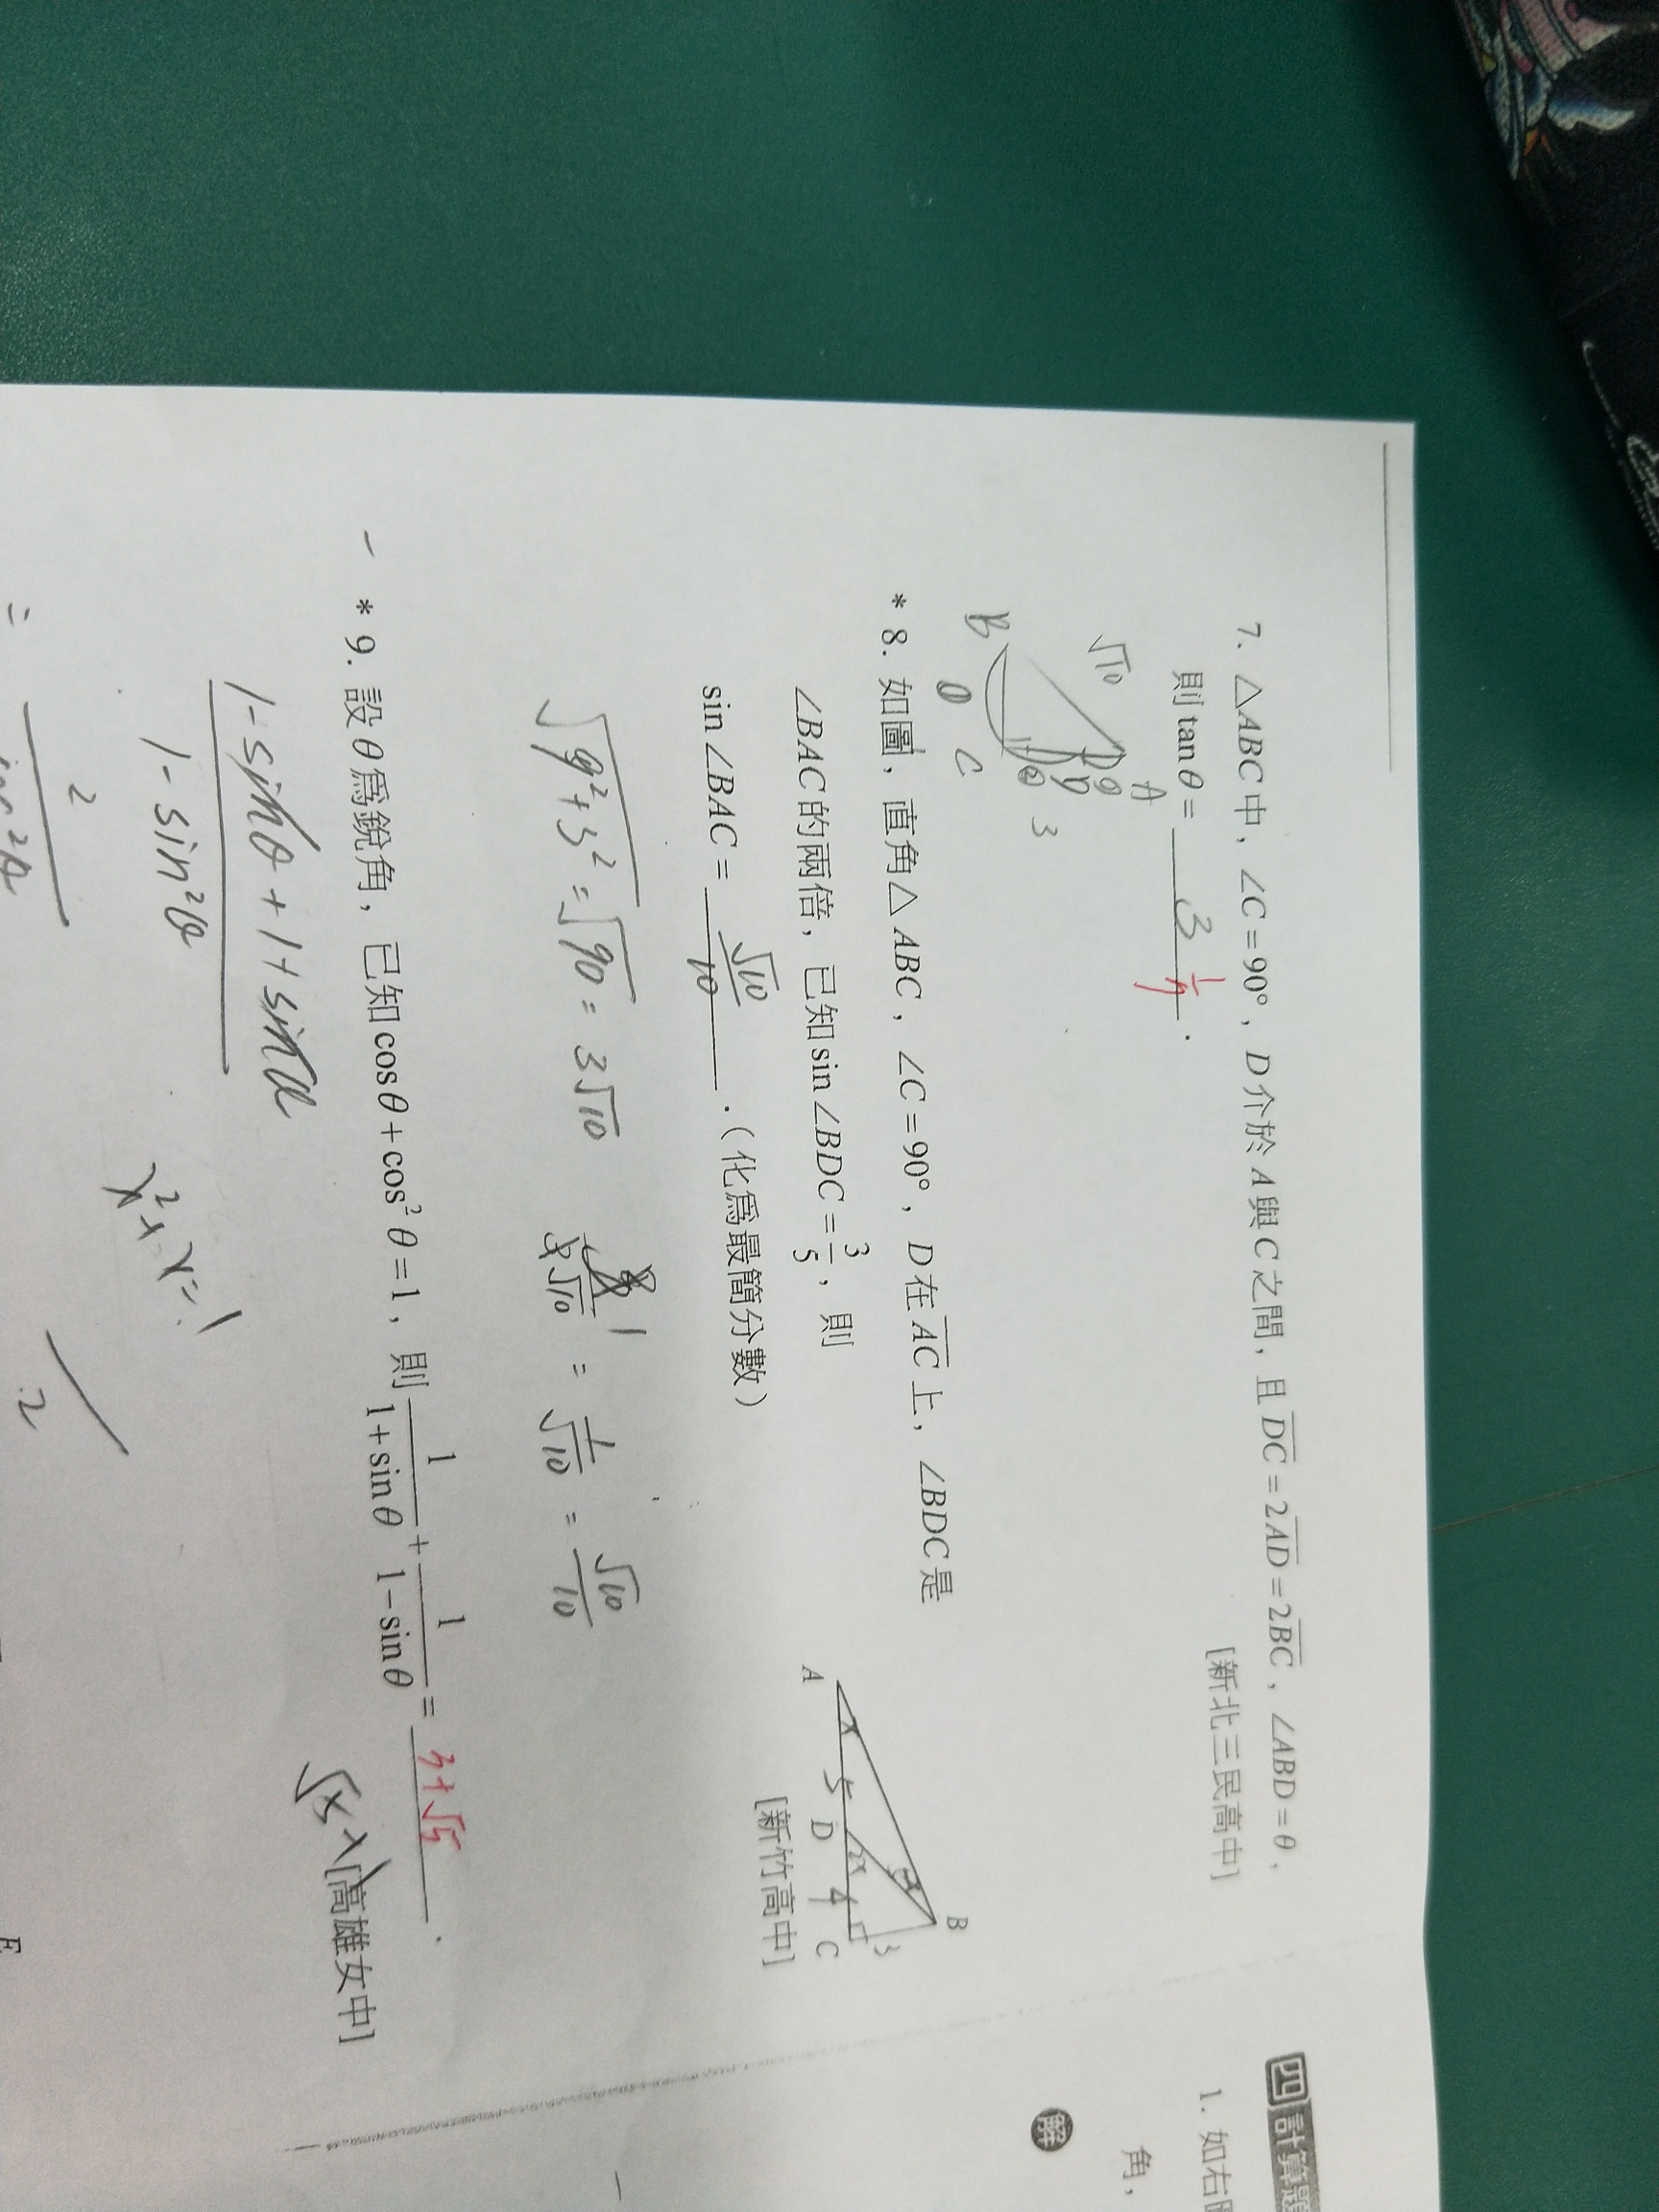 7. △ABC中，∠C=90°，D介於A與C之間，且DC=2AD=2BC，∠ABD=θ，
則tanθ= 3 1/7 ．
[新北三民高中]
√10
A
D
3
B
D C
* 8. 如圖，直角△ABC，∠C=90°，D在AC上，∠BDC是
∠BAC的兩倍，已知sin∠BDC=3/5，則
sin∠BAC= √10/10 ．（化爲最簡分數）
A
5
D
4
C
3
B
[新竹高中]
√(9²+3²) = √90 = 3√10
1/√10 = √10/10
* 9. 設θ爲銳角，已知cosθ+cos²θ=1，則 1/(1+sinθ) + 1/(1-sinθ) = 3+√5 ．
[高雄女中]
1-sinθ+1+sinθ
1-sin²θ
x²+x=1
2
2
四 計算題
1. 如右
角，
解